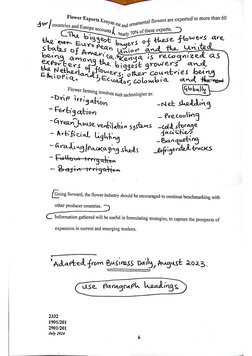 Flower Exports Kenyan cut and ornamental flowers are exported to more than 60
for/ countries and Europe accounts nearly 70% of these exports.
The biggest buyers of these flowers are
the European Union and the United
States of America. Kenya is recognized as
being among the biggest growers and
exporters of flowers; other countries being
the Netherlands, Ecuador, Colombia and
Ethiopia.
Globally
Flower farming involves such technologies as:
- Drip irrigation
- Fertigation
- Green house ventilation systems
- Artificial lighting
- Grading/packaging sheds
- Follow irrigation
- Basin irrigation
- Net shedding
- Precooling
- cold storage
facilities
- Banqueting
- Refrigerated trucks
Going forward, the flower industry should be encouraged to continue benchmarking with
other producer countries.
Information gathered will be useful in formulating strategies, to capture the prospects of
expansion in current and emerging markets.
Adapted from Business Daily, August 2023.
use paragraph headings
2332
1901/201
2901/201
July 2024
6